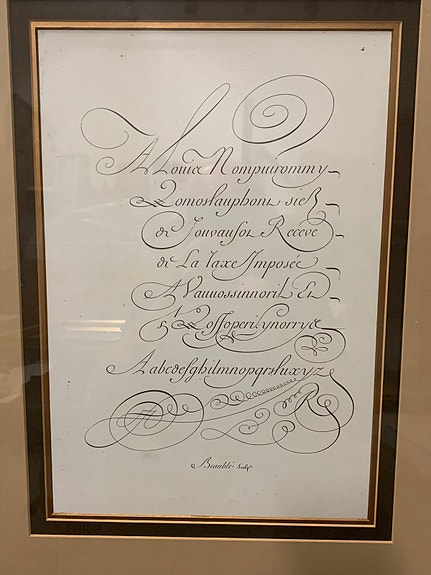 A Louïce Nompuirommy
Lomoslauphont sieß
de Jouvausot Receve
de La Taxe Imposée
A Vauuossinnorit Et
Lossoperilynorryx
Aabcdefghilmnopqrsluxyz
Beaublé Sculp